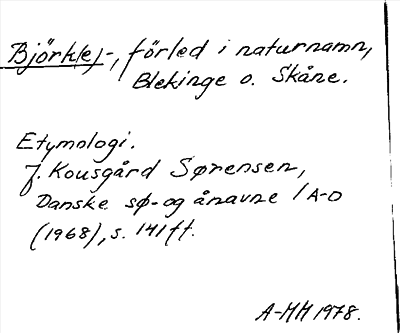 Björk(e)-, förled i naturnamn,
Blekinge o. Skåne.
Etymologi.
J. Kousgård Sørensen,
Danske sø- og ånavne 1 A-D
(1968), s. 141 ff.
A-MH 1978.